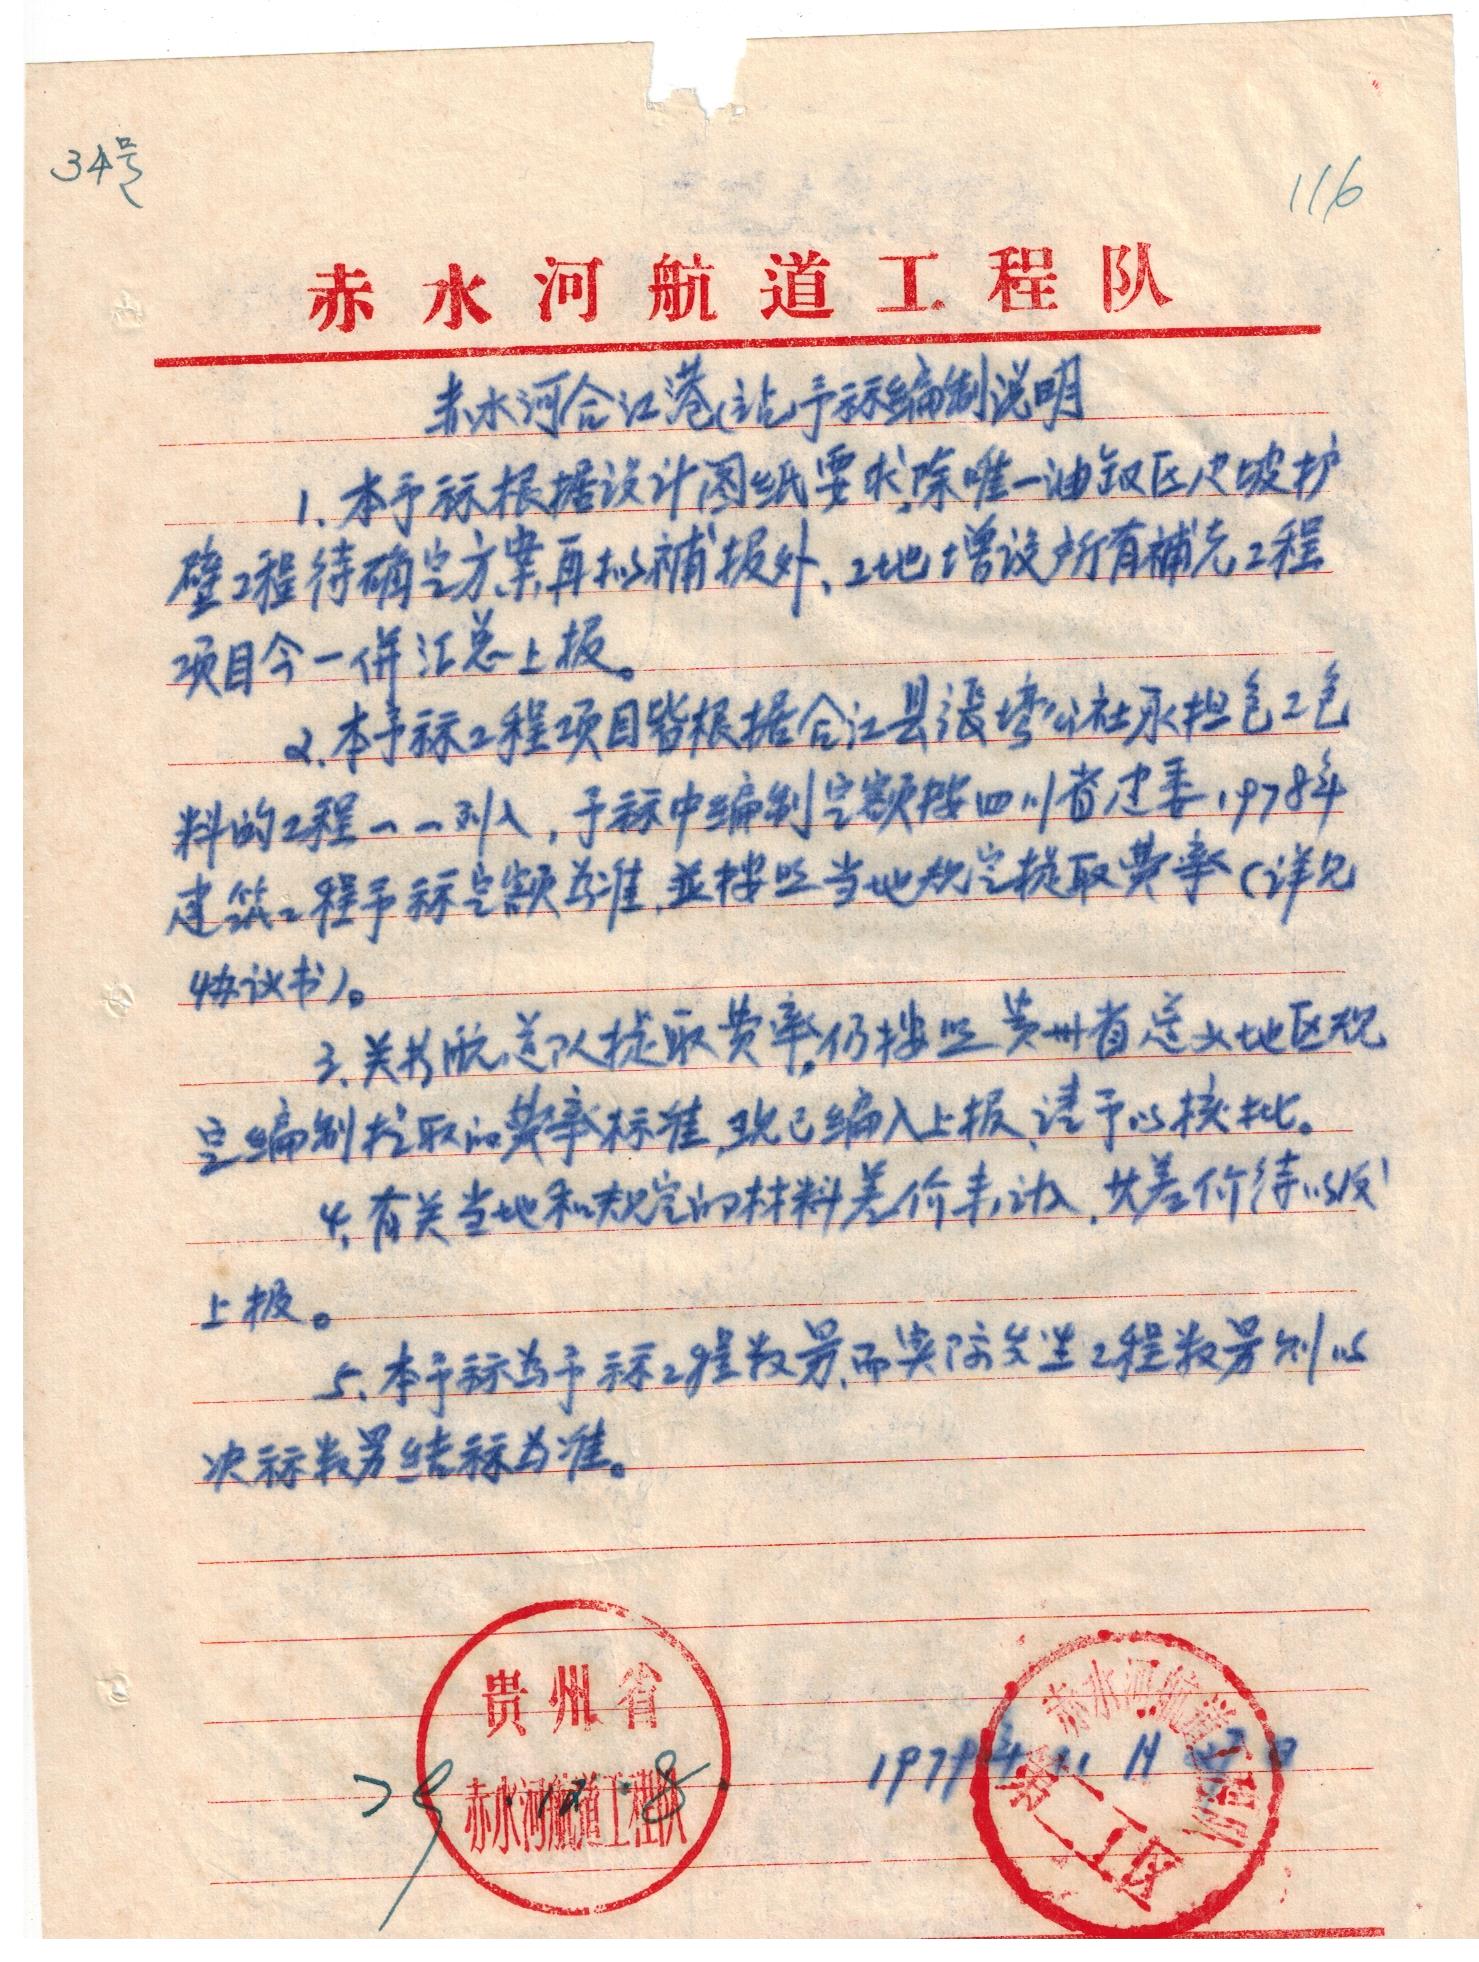 34号
116
赤水河航道工程队
赤水河合江港(站)予祘编制说明
1、本予祘根据设计图纸要求,除唯一油𠮿区尺坡护
壁工程待确定方案再拟补报外、工地增设所有补充工程
项目今一併汇总上报。
2、本予祘工程项目皆根据合江县湾公社承担包工包
料的工程一一列入,予祘中编制定额按四川省建委1978年
建筑工程予祘定额为准,並按照当地规定提取费率(详见
协议书)。
3、关于航道队提取费率,仍按照贵州省遵义地区规
定编制提取的费率标准,现已编入上报、请予以核批。
4、有关当地和规定的材料差价未计入,其差价待以后
上报。
5、本予祘为予祘工程数另、而实际发生工程数另则以
决祘数另结祘为准。
贵州省
赤水河航道工程队
79.12.8.
1979年11月日
赤水河航道工程队
第二工区